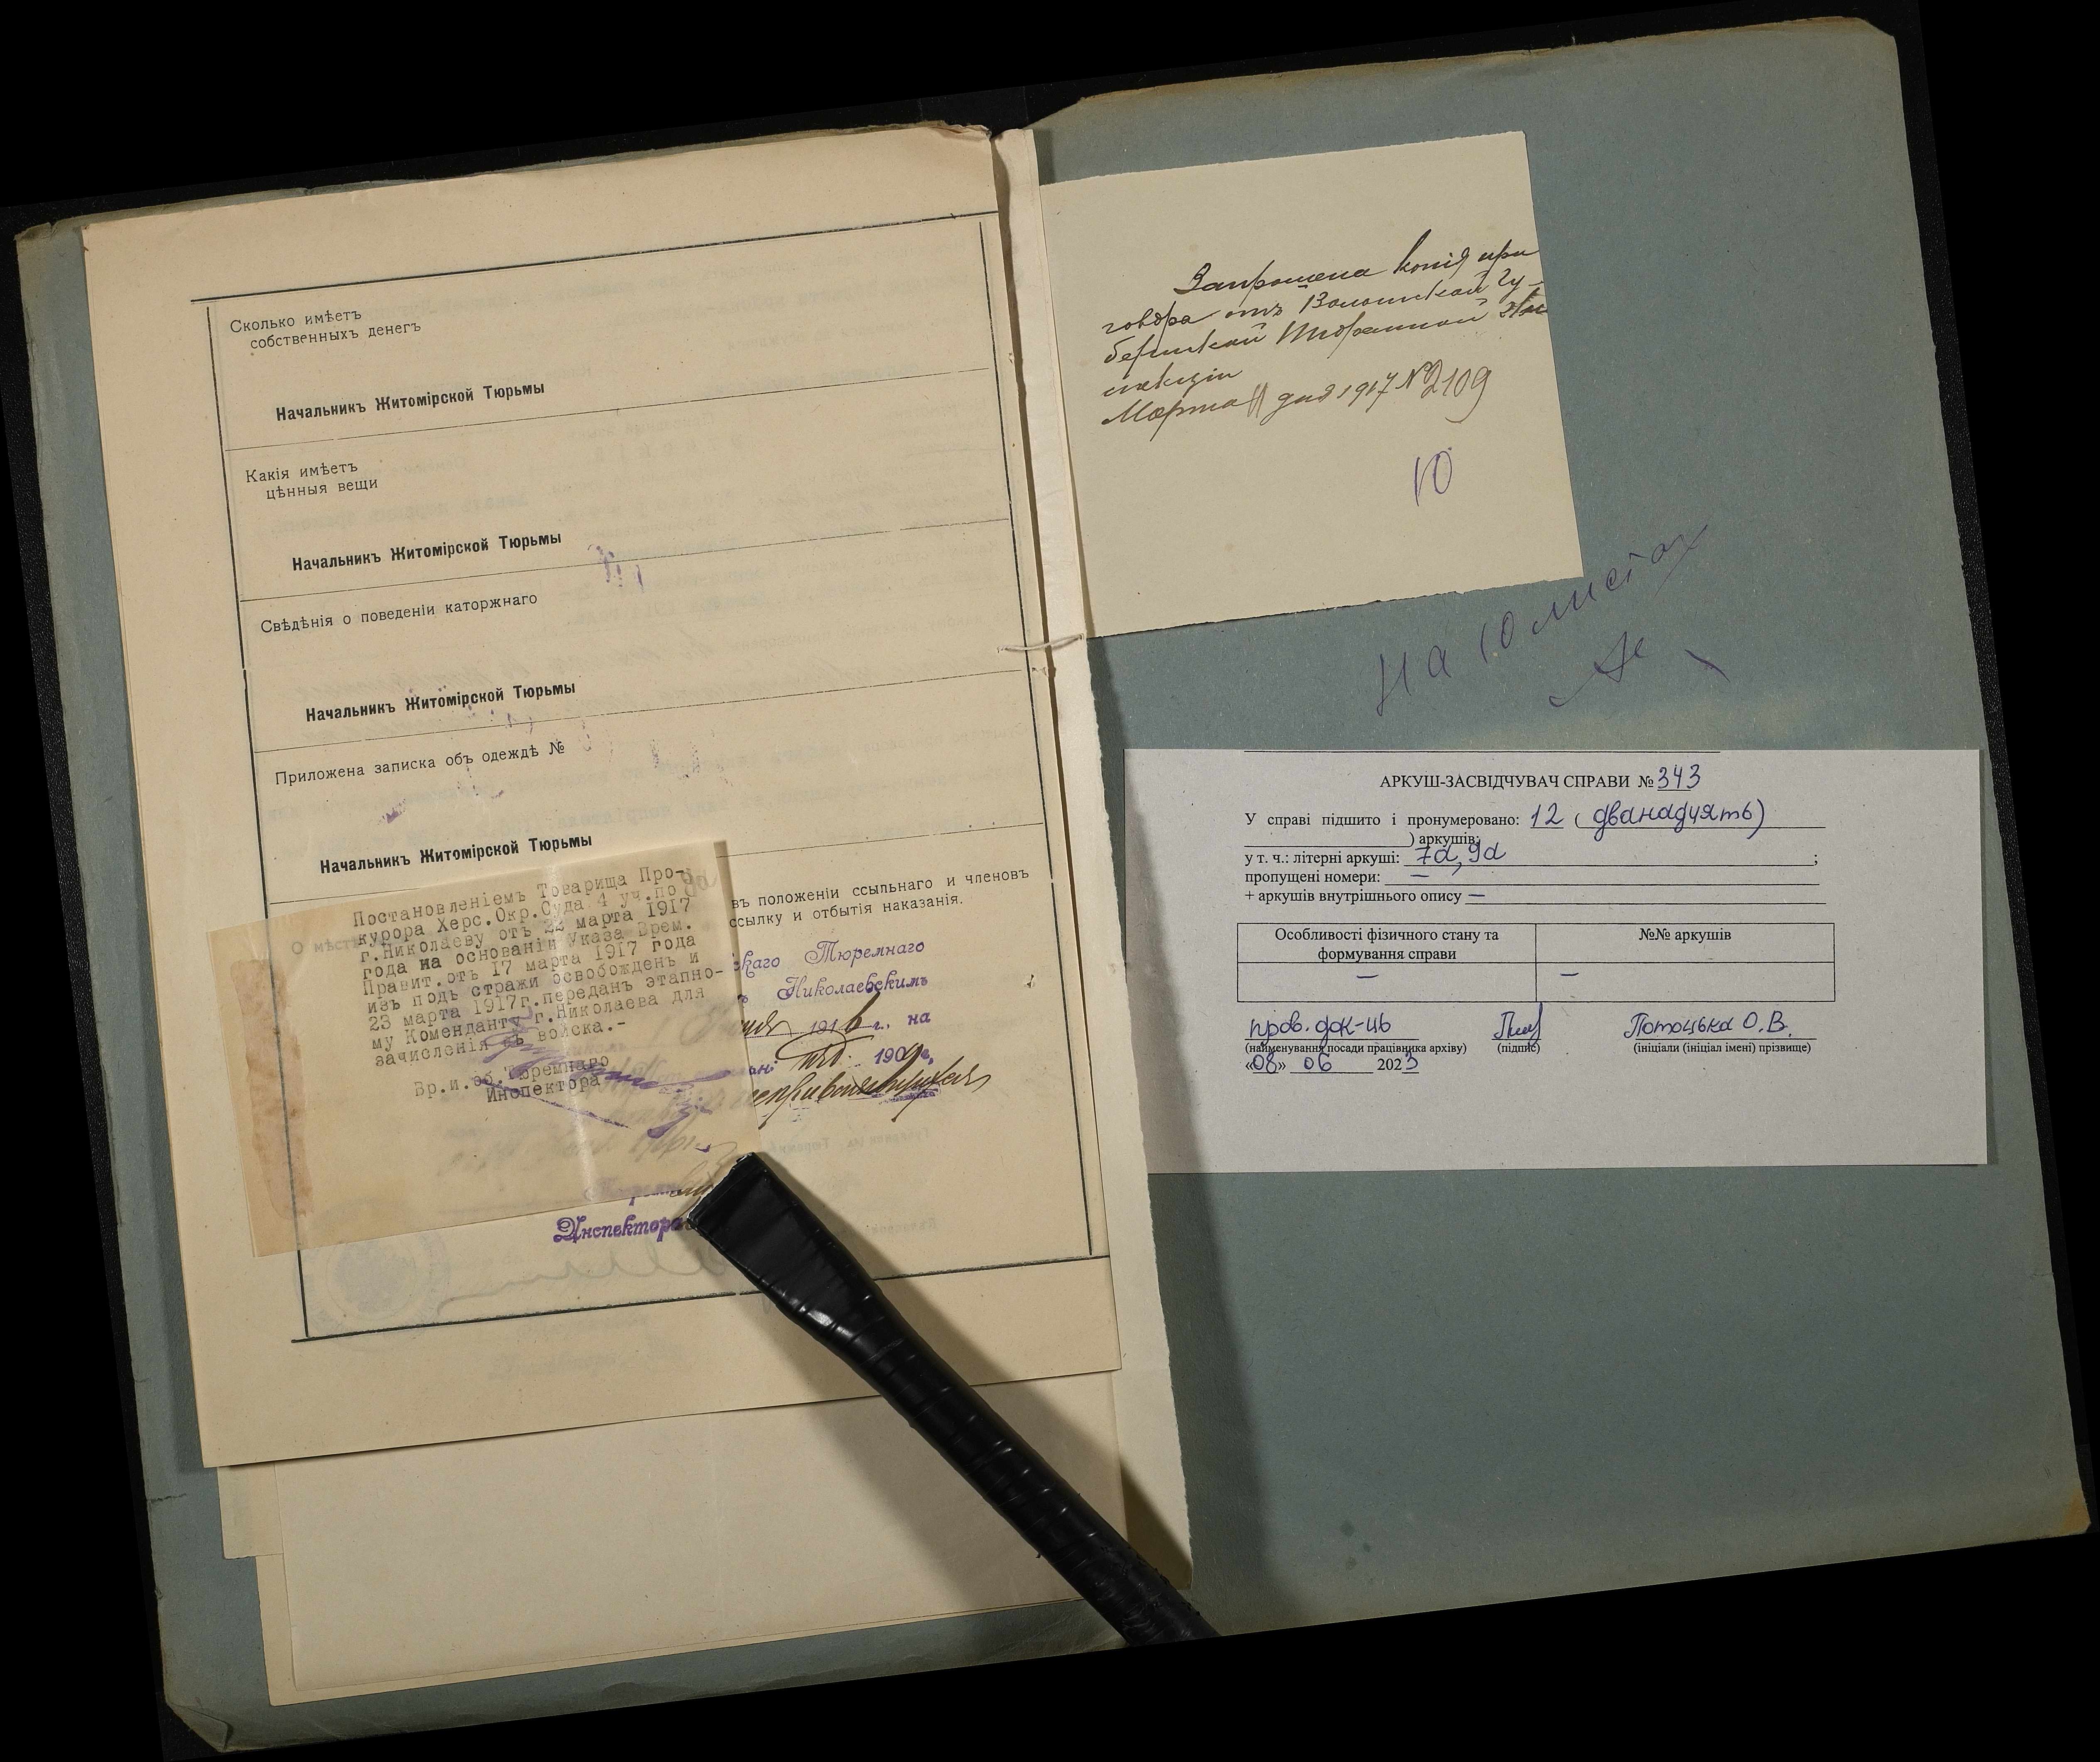 Сколько имѣетъ
собственныхъ денегъ
Начальникъ Житомірской Тюрьмы
Какія имѣетъ
цѣнныя вещи
Начальникъ Житомірской Тюрьмы
Свѣдѣнія о поведеніи каторжнаго
Начальникъ Житомірской Тюрьмы
Приложена записка объ одеждѣ №
Начальникъ Житомірской Тюрьмы
Постановленіемъ Товарища Про-
курора Херс.Окр.Суда 4 уч.по
г.Николаеву отъ 22 марта 1917
года на основаніи Указа Врем.
Правит.отъ 17 марта 1917 года
изъ подъ стражи освобожденъ и
23 марта 1917г.переданъ этапно-
му Коменданту г.Николаева для
зачисленія въ войска.-
Вр.и.об.Тюремнаго
Инспектора
О мѣст
въ положеніи ссыльнаго и членовъ
ссылку и отбытія наказанія.
скаго Тюремнаго
ъ Николаевскимъ
1916 г. на
1909 г.
Инспектора
Запрошена копія при
говора отъ Волынской Гу-
бернской Тюремной Ин
спекціи
Марта 11 дня 1917 №2109
10
На 10 листах
АРКУШ-ЗАСВІДЧУВАЧ СПРАВИ № 343
У справі підшито і пронумеровано: 12 ( дванадцять)
) аркушів;
у т. ч.: літерні аркуші: 7а, 9а ;
пропущені номери: —
+ аркушів внутрішнього опису —
Особливості фізичного стану та формування справи
№№ аркушів
—
—
пров. док-ць
Потоцька О.В.
(найменування посади працівника архіву) (підпис) (ініціали (ініціал імені) прізвище)
«08» 06 2023